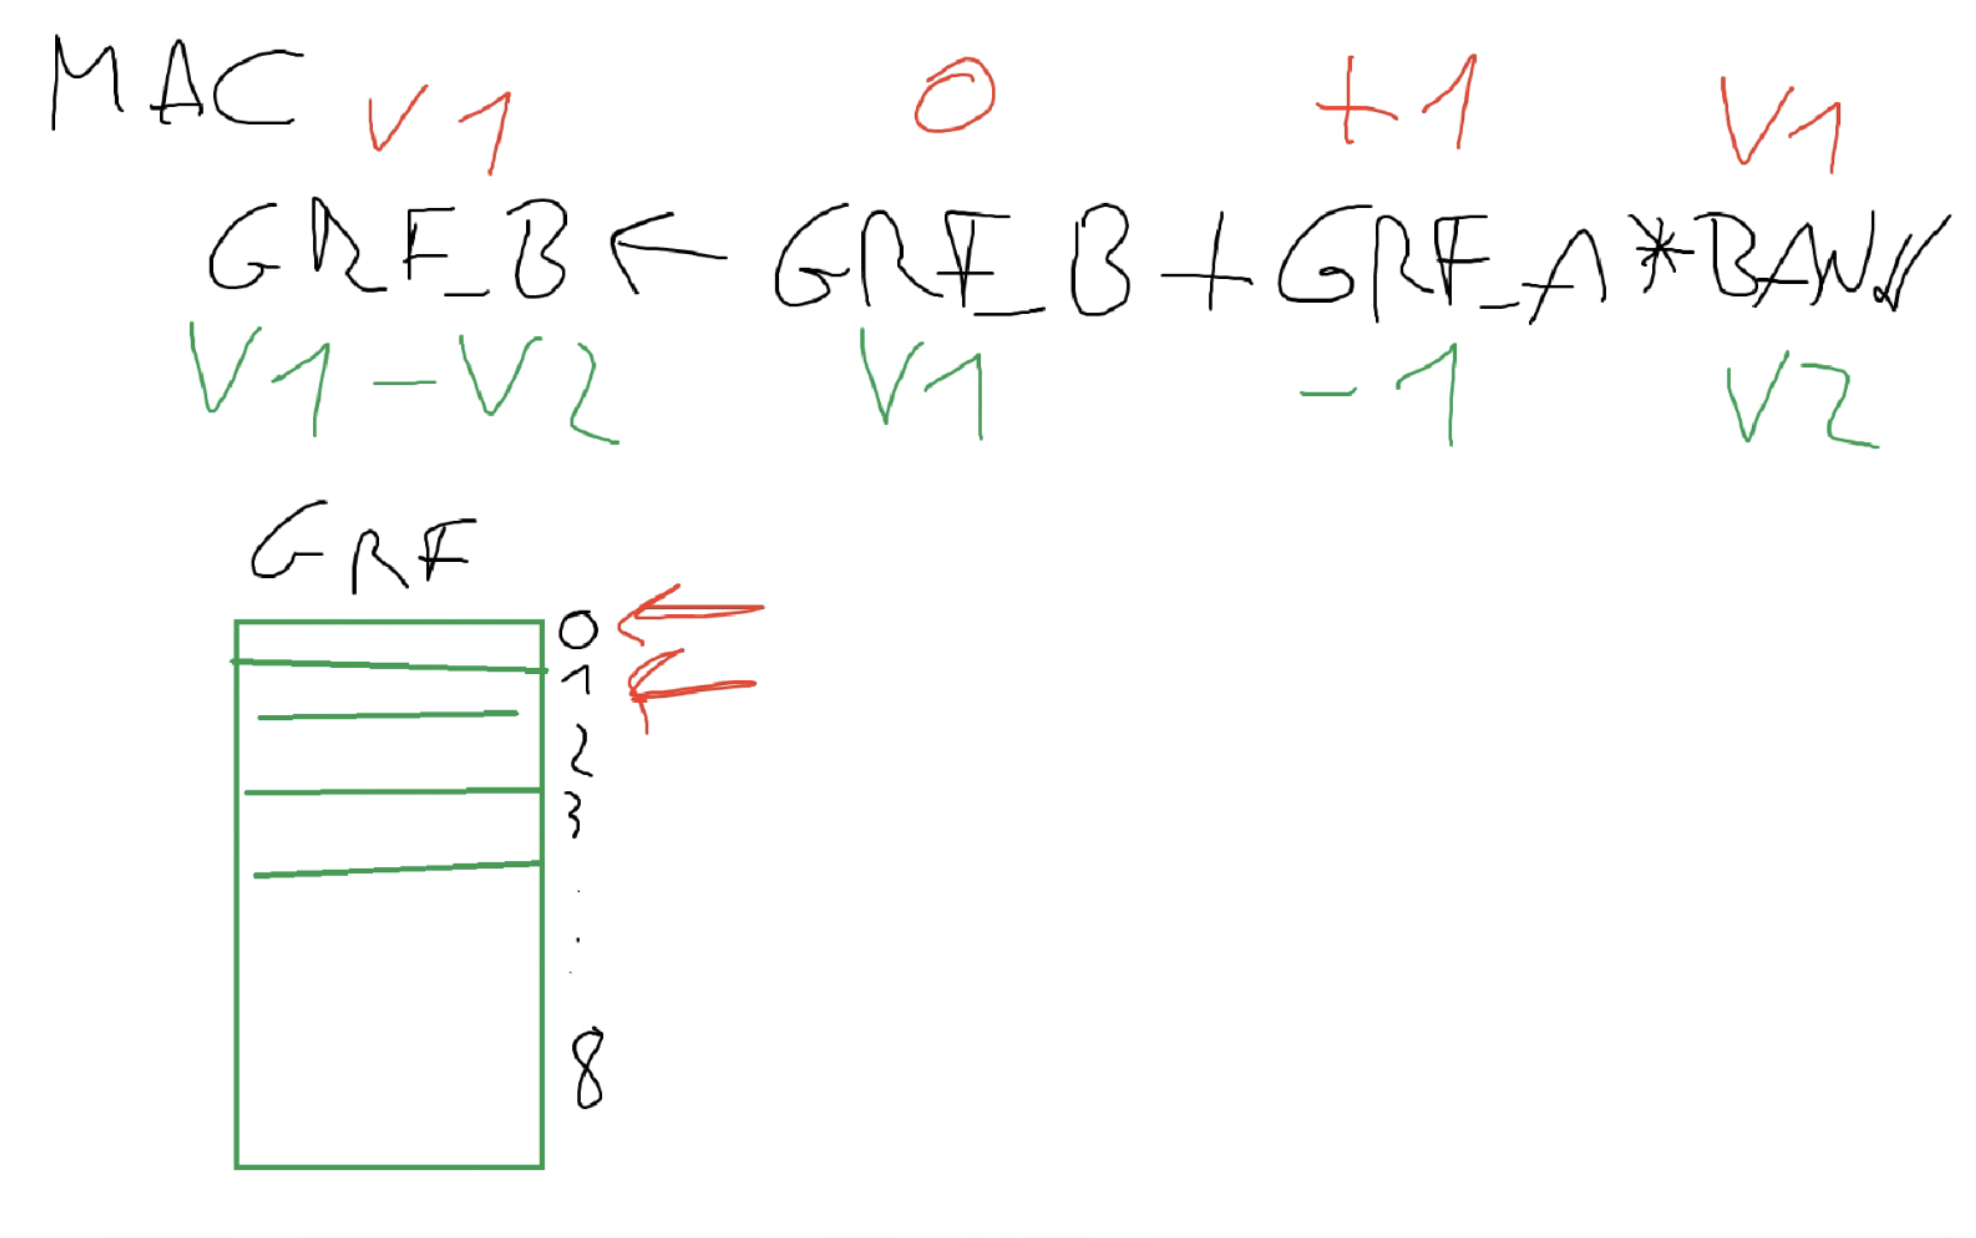 MAC
V1 0 +1 V1
GRF_B ← GRF_B + GRF_A * BANK
V1 - V2 V1 -1 V2
GRF
0
1
2
3
.
.
.
8